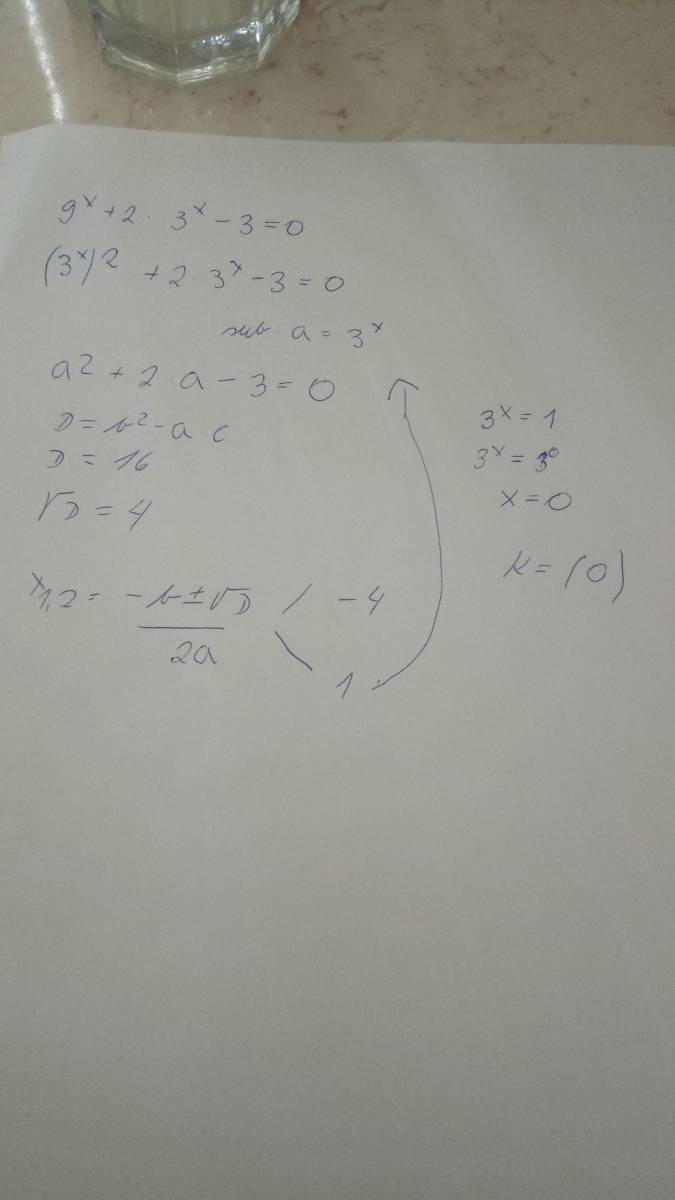 9^x + 2 · 3^x - 3 = 0
(3^x)^2 + 2 · 3^x - 3 = 0
sub a = 3^x
a^2 + 2 · a - 3 = 0
D = b^2 - a · c
D = 16
√D = 4
x1,2 = (-b ± √D) / 2a
-4
1
3^x = 1
3^x = 3^0
x = 0
K = (0)